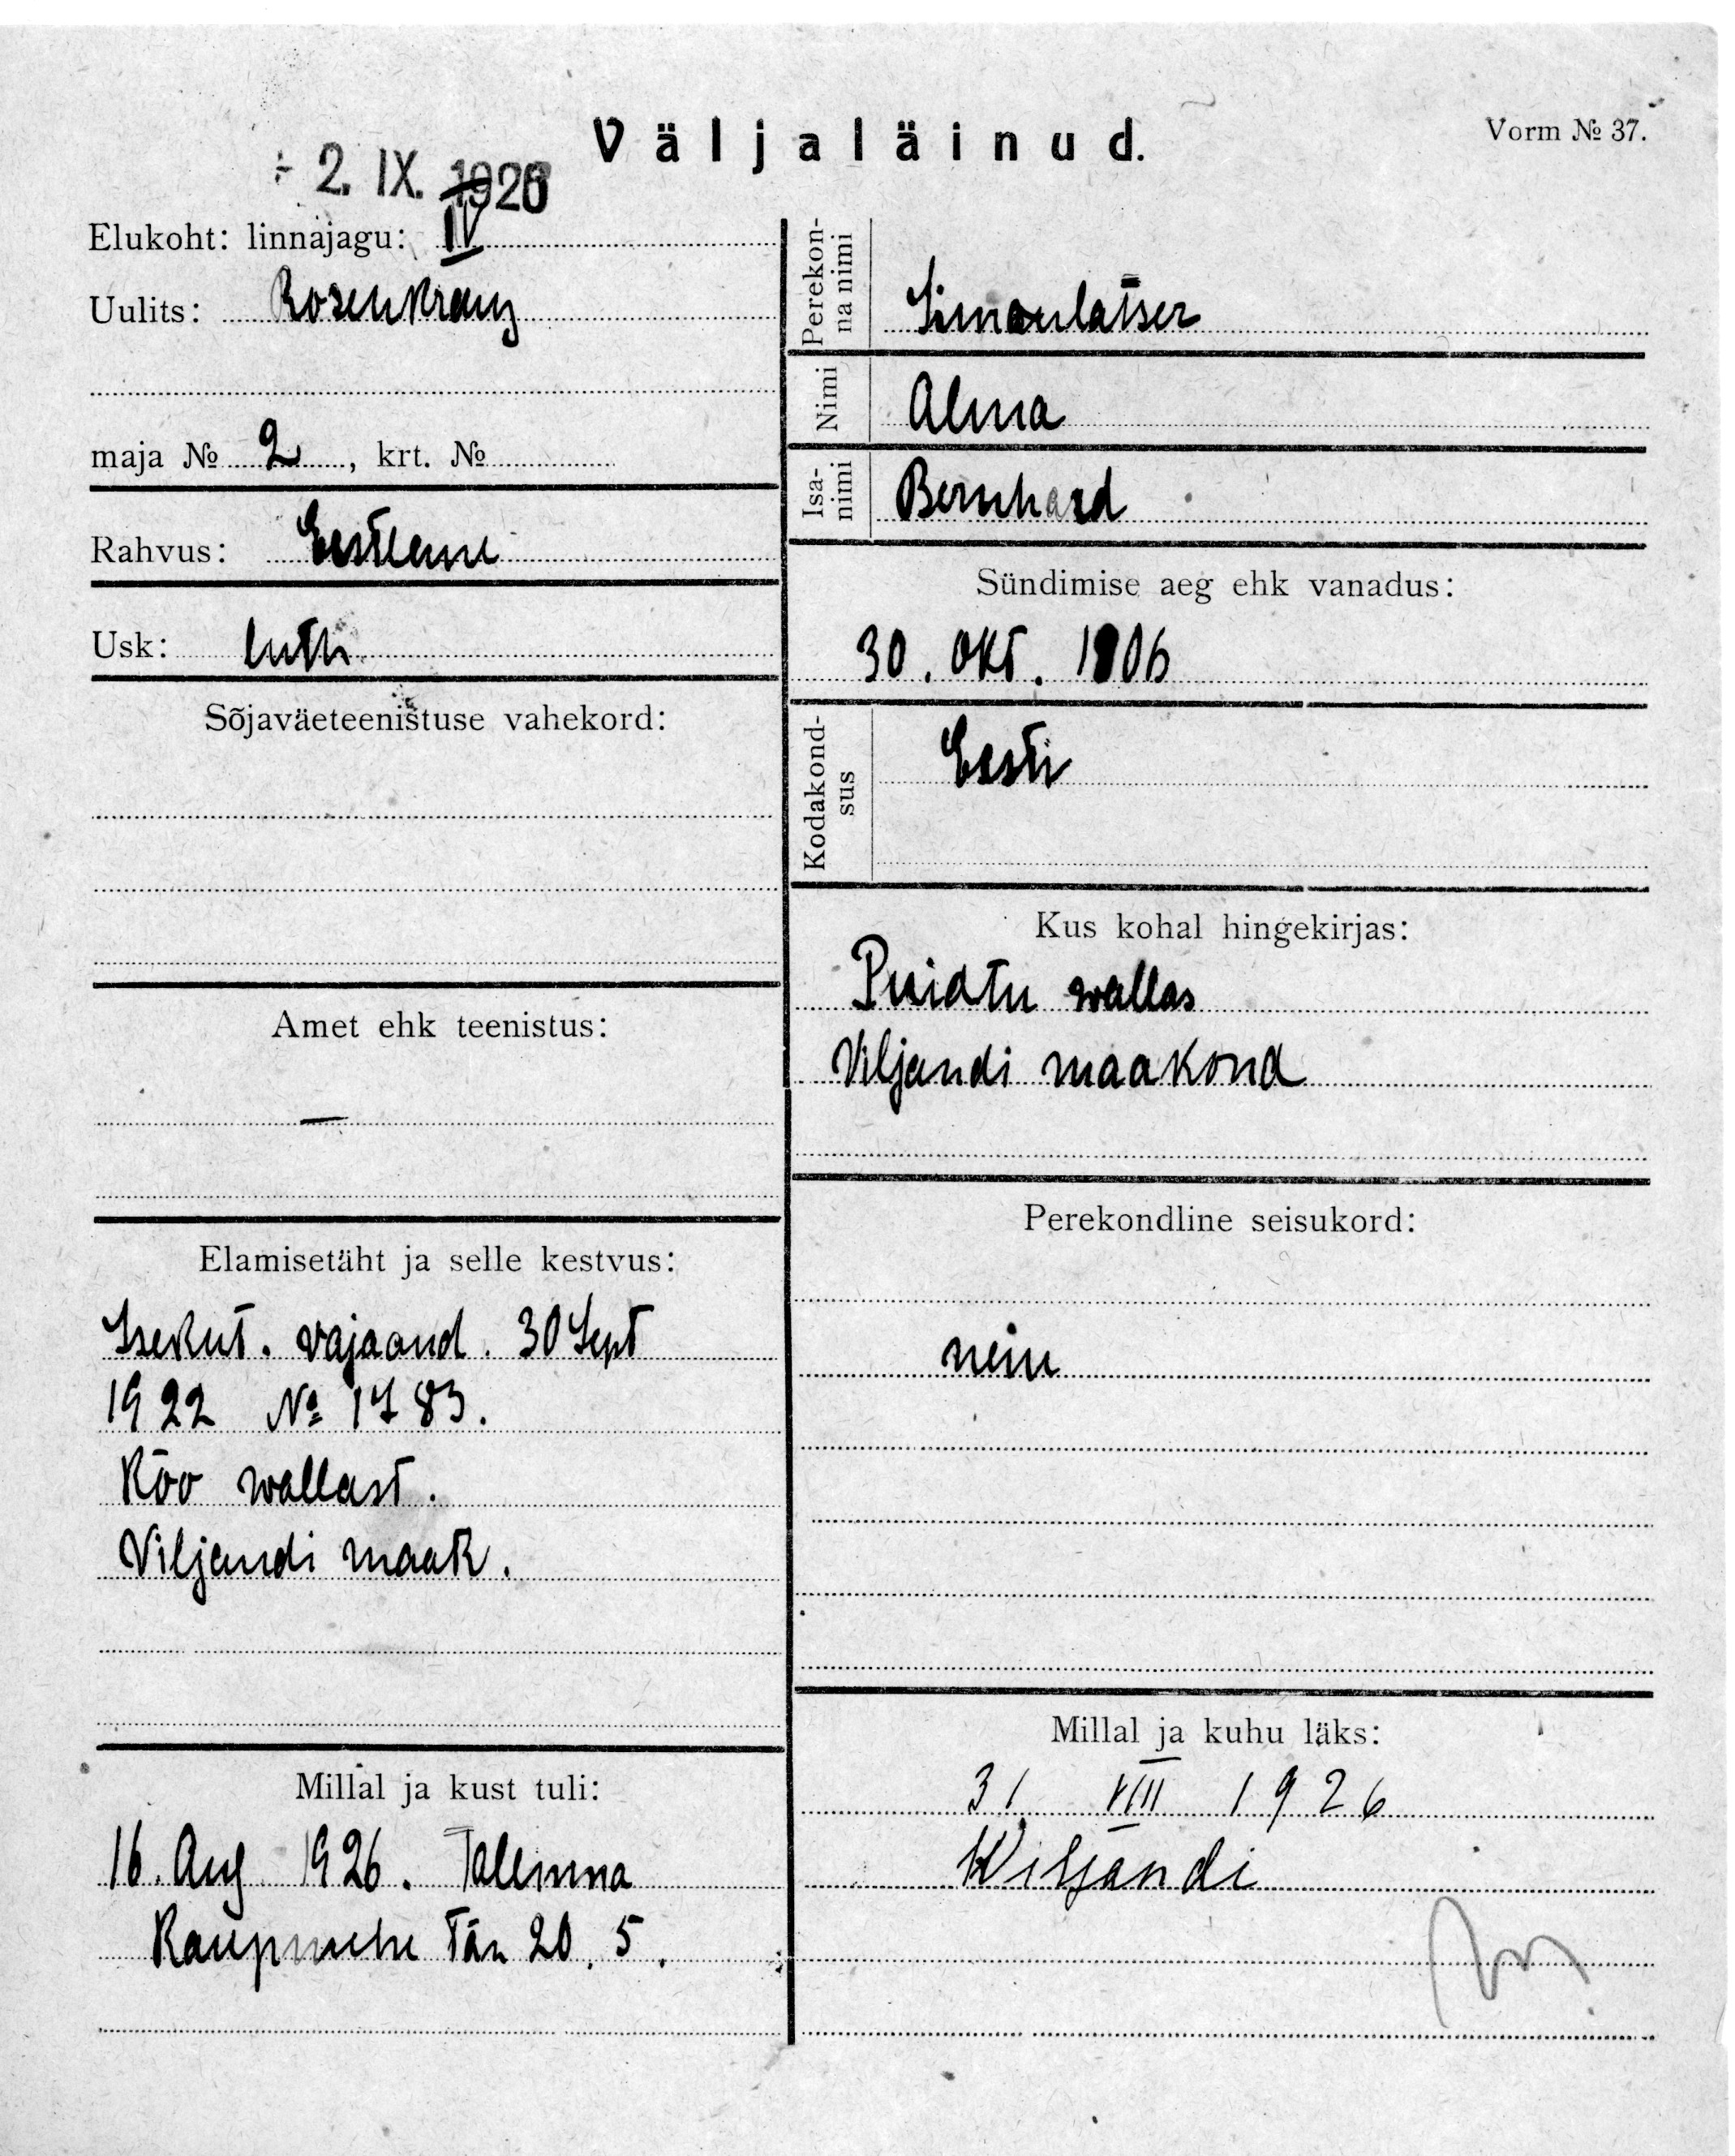 Väljaläinud.
Vorm № 37.
÷ 2. IX. 1926
Elukoht: linnajagu: IV
Uulits: Rosenkranz
maja № 2, krt. №
Rahvus: Eestlane
Usk: luth
Sõjaväeteenistuse vahekord:
Amet ehk teenistus:
—
Elamisetäht ja selle kestvus:
Isekut. vajaand. 30 Sept
1922 № 1783.
Kõo wallast.
Viljandi maak.
Millal ja kust tuli:
16. Aug 1926. Tallinna
Kaupmehe tän 20. 5.
Perekon-
na nimi
Simonlatser
Nimi
Alma
Isa-
nimi
Bernhard
Sündimise aeg ehk vanadus:
30. okt. 1906
Kodakond-
sus
Eesti
Kus kohal hingekirjas:
Puiatu wallas
Viljandi maakond
Perekondline seisukord:
neiu
Millal ja kuhu läks:
31 VIII 1926
Wiljandi